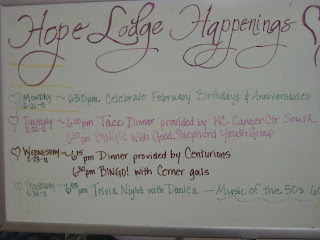 Hope Lodge Happenings
Monday ~ 6:30pm Celebrate February Birthdays & Anniversaries
2-21-11
Tuesday ~ 6:00pm Taco Dinner provided by KC Cancer Ctr South
2-22-11 6:30 pm BINGO! With Good Shepherd Youth Group
Wednesday ~ 6:15 pm Dinner provided by Centurions
2-23-11 6:30 pm BINGO! with Cerner gals
Thursday ~ pm Trivia Night with Danica ~ Music of the 50s
2-24-11